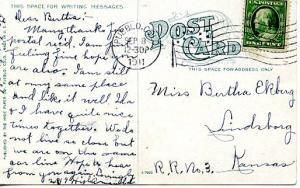 THIS SPACE FOR WRITING MESSAGES
Dear Bertha:-
Many thanks for
postal rec'd, I am
feeling fine hope you
are also. I am still
at my same place
and like it well Ida
& I have quite nice
times together. We do
not live so close but
we are on the same
car line. Hope to hear
from you again.
PUEBLO, COLO.
SEP
12-30P
1911
POST
CARD
THIS SPACE FOR ADDRESS ONLY
Miss Bertha Ekburg
Lindsborg
Kansas
R.R. No. 3.